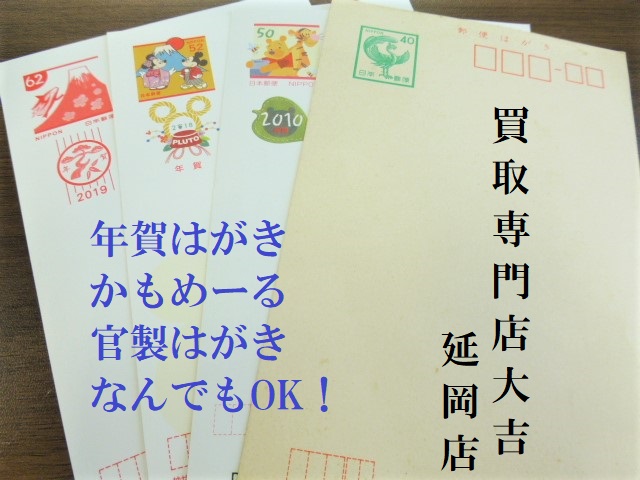 62
日本郵便
NIPPON
年賀
2019
52
PLUTO
年賀
50
日本郵便 NIPPON
2010
40
日本郵便
郵便はがき
買取専門店大吉
延岡店
年賀はがき
かもめーる
官製はがき
なんでもOK！